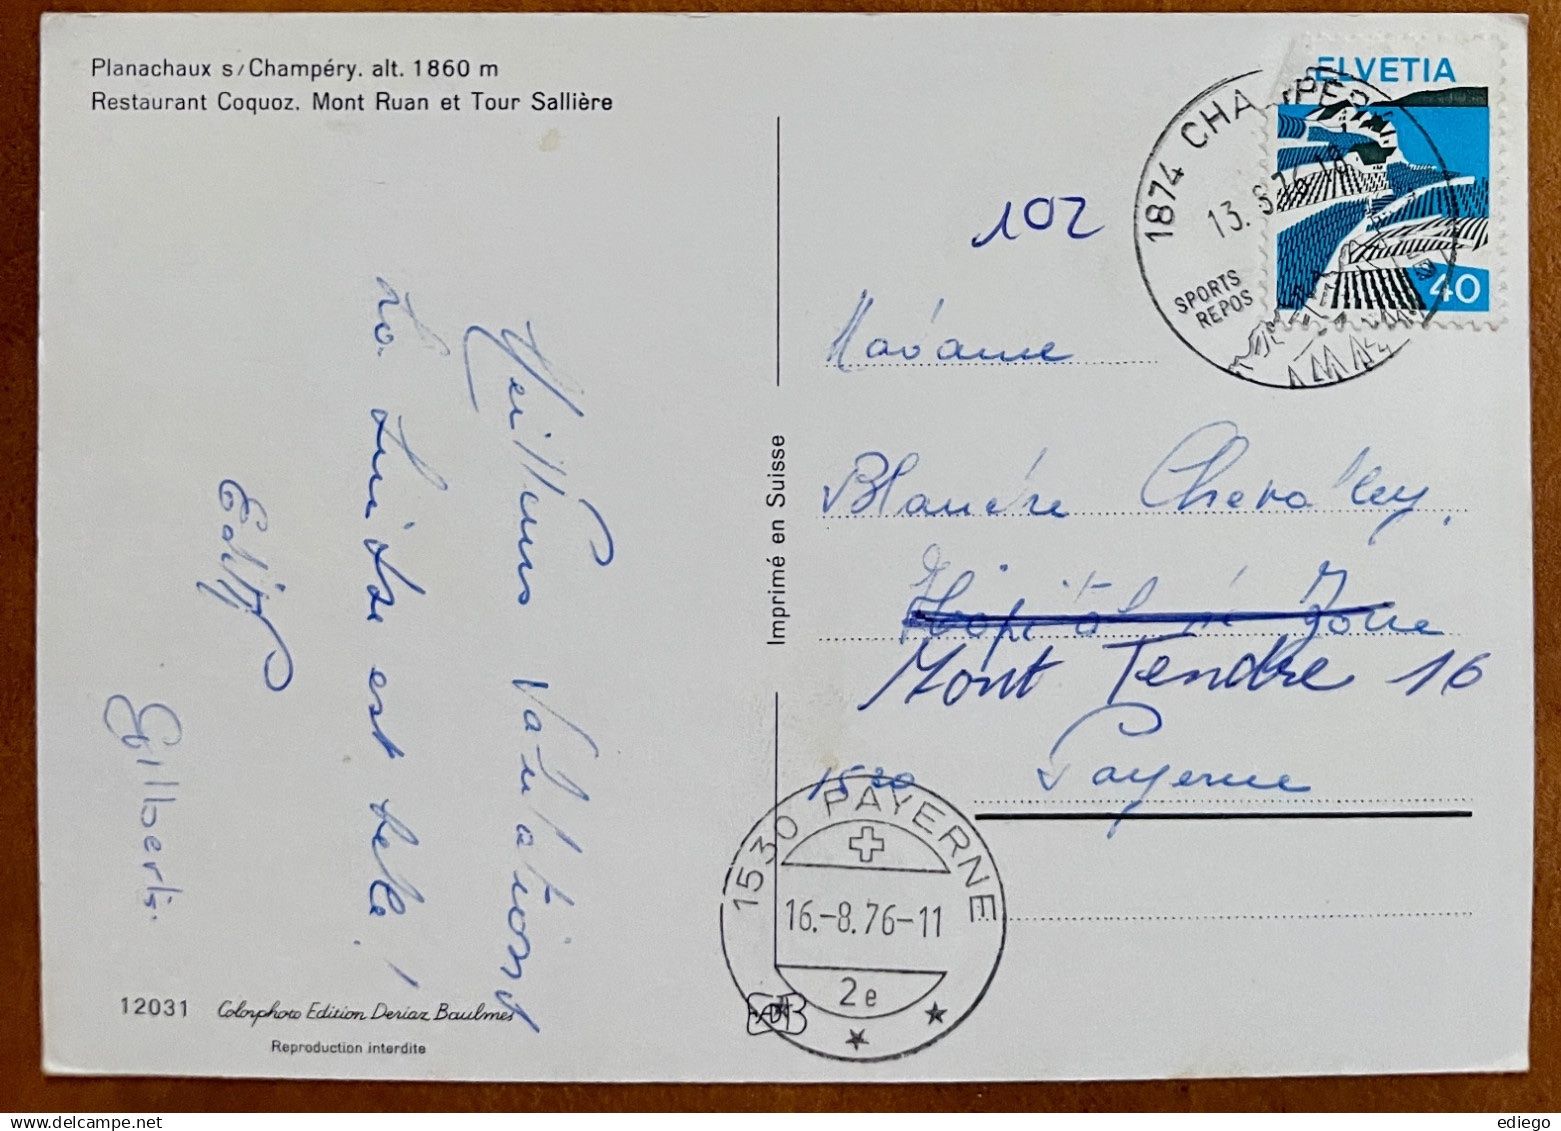 Planachaux s/Champéry. alt. 1860 m
Restaurant Coquoz. Mont Ruan et Tour Sallière
Meilleurs salutations
La Suisse est belle!
Edith
Gilberts.
12031 Colorphoto Edition Deriaz Baulmes
Reproduction interdite
Imprimé en Suisse
HELVETIA
40
1874 CHAMPÉRY
13.8.76 18
SPORTS
REPOS
102
Madame
Blanche Chevalley.
Hôpital de Zone
Mont Tendre 16
1530 Payerne
1530 PAYERNE
16.-8.76-11
2e
ediego